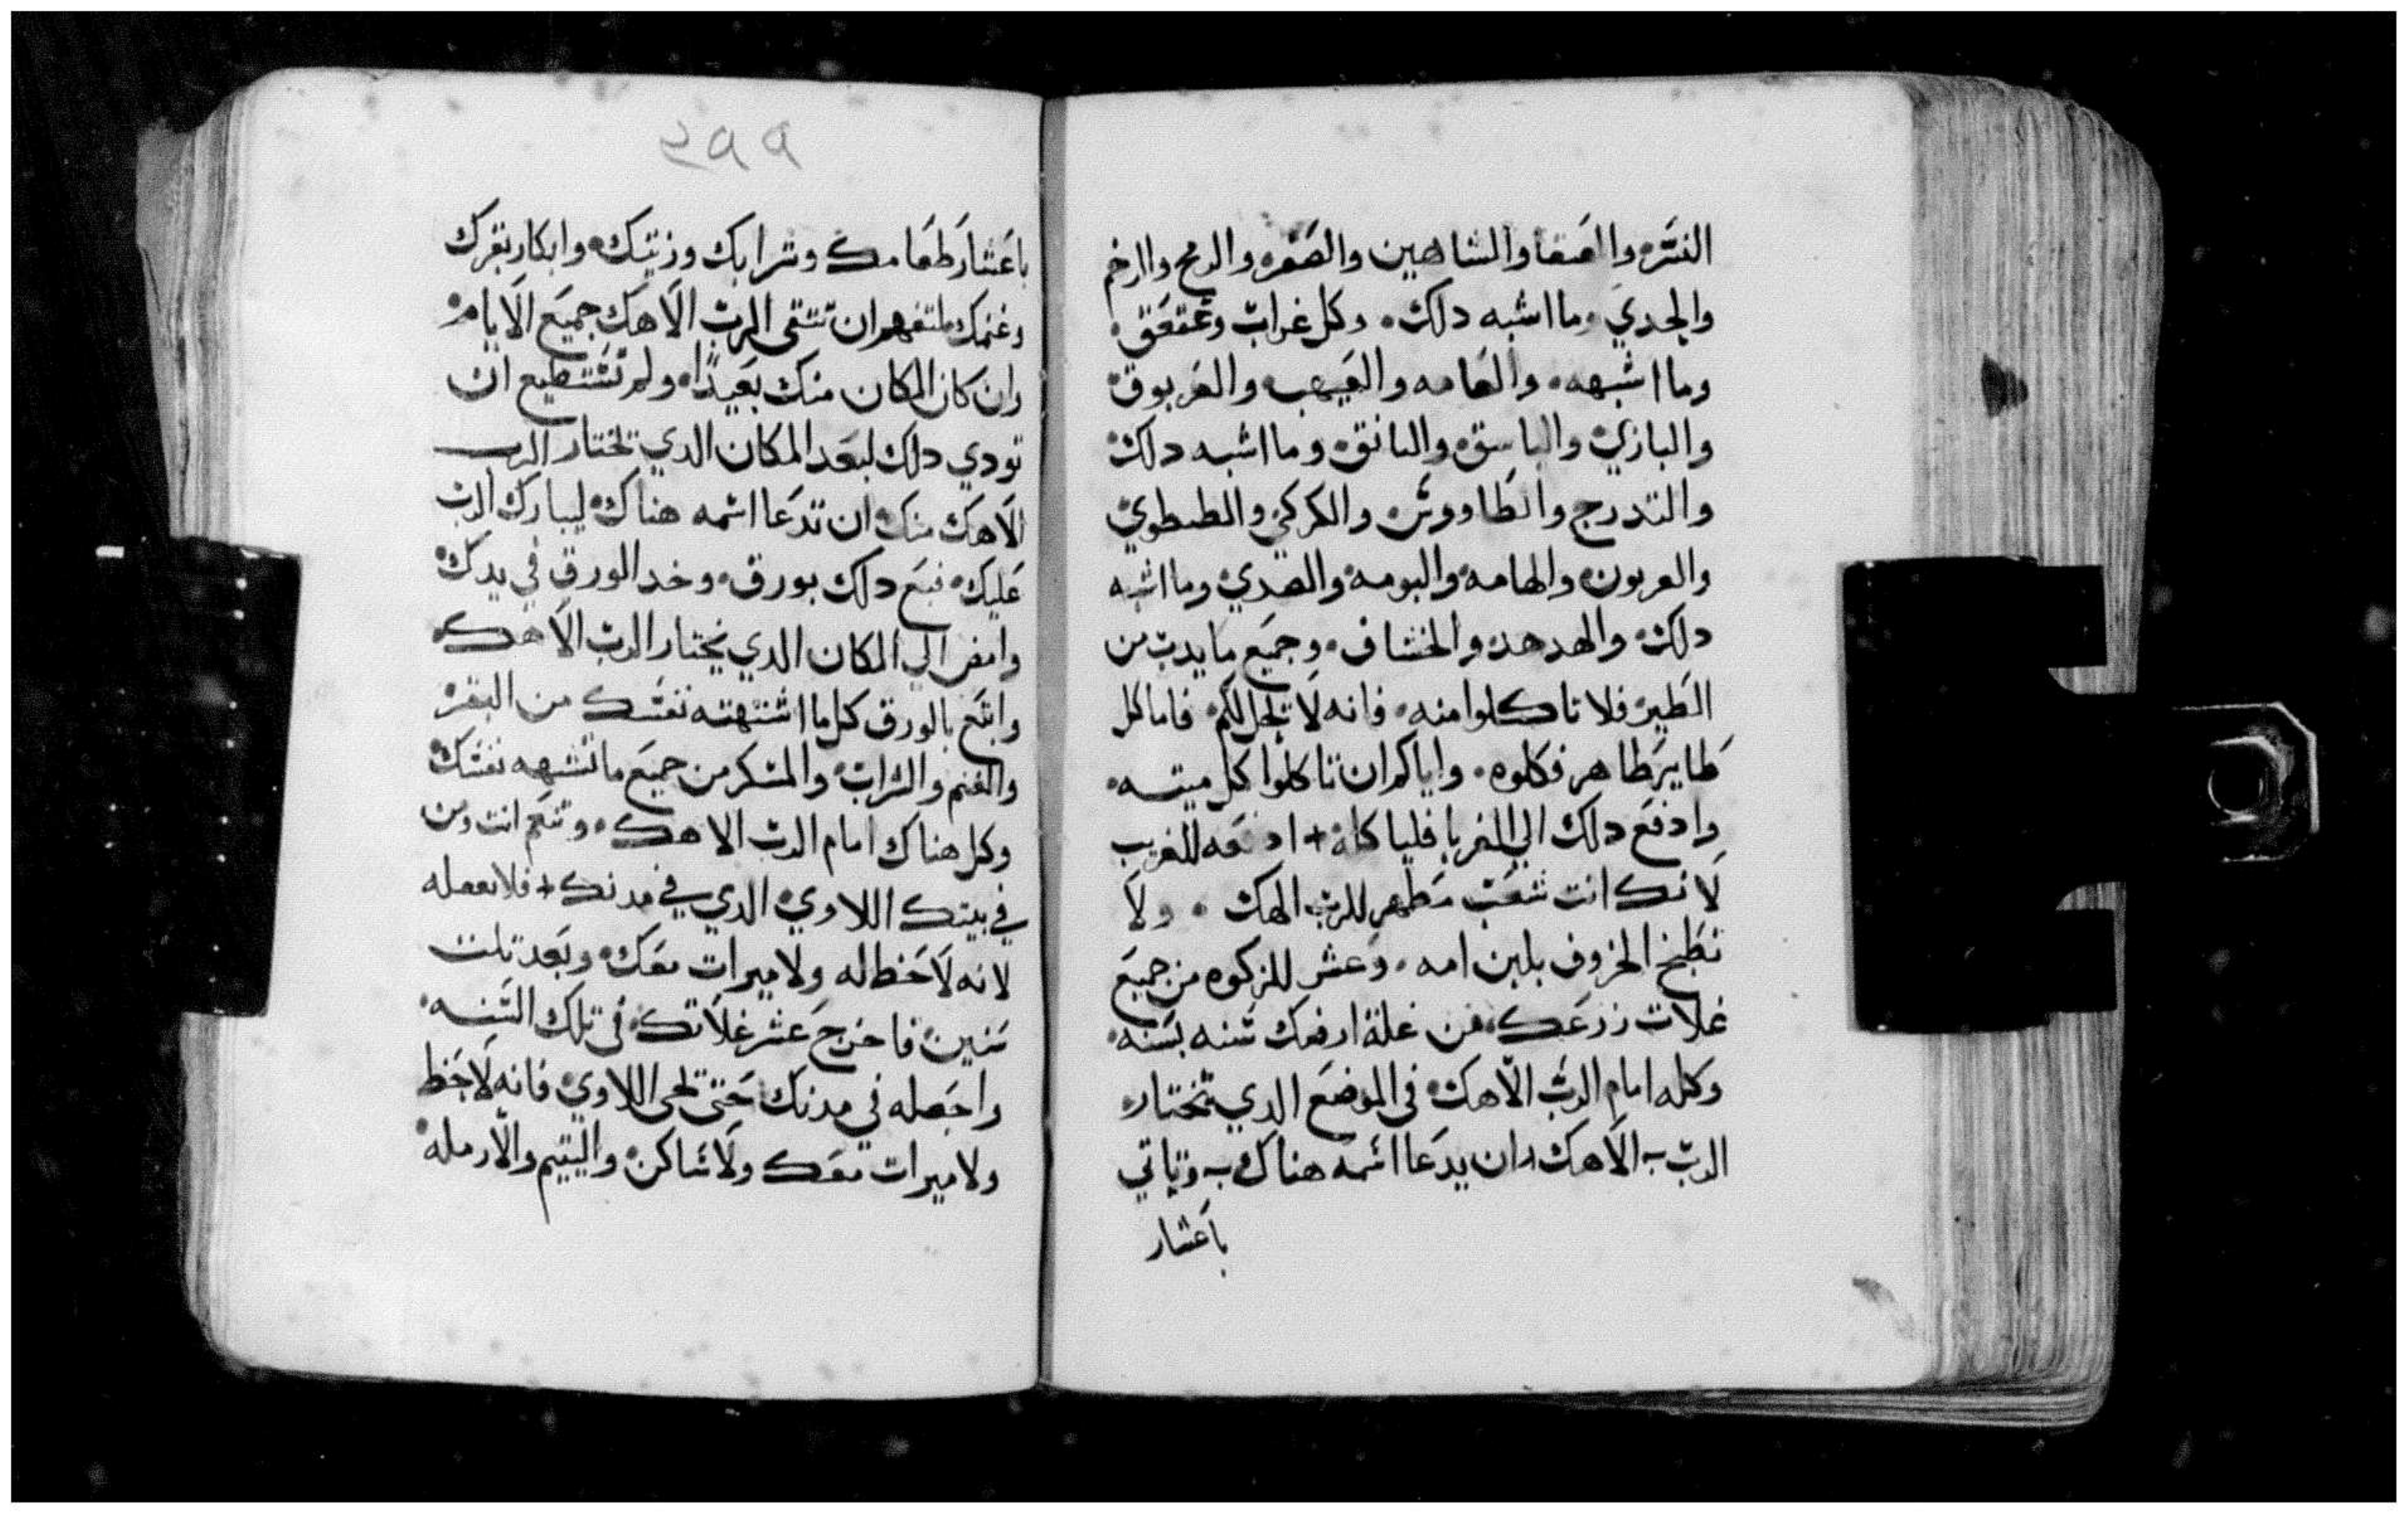 النسر والعنقا والشاهين والصقر والرمح والرخم
والجدي وما اشبه دلك وكل غراب وعقعق
وما اشبهه والعامه والغيهب والغربوق
والبازي والباسق والبانق وما اشبه دلك
والتدرج والطاووس والكركي والطيطوي
والعربون والهامه والبومه والصدي وما اشبه
دلك والهدهد والخشاف وجميع ما يدب من
الطير فلا تاكلوا منه فانه لا تحل لكم فاما كل
طاير طاهر فكلوه واياكم ان تاكلوا كل ميته
وادفع دلك الي الغربا فلياكله + ادفعه للغريب
لانك انت شعب مطهر للرب الهك ولا
تطبخ الخروف بلبن امه وعشر للزكوه من جميع
غلات زرعك من غلة ارضك سنه بسنه
وكله امام الرب الاهك في الموضع الدي تختار
الرب الاهك ان يدعا اسمه هناك وتاتي
باعشار
٢٩٩
باعشار طعامك وشرابك وزيتك وابكار بقرك
وغنمك لتفهم ان تتقي الرب الاهك جميع الايام
وان كان المكان منك بعيدا ولم تستطيع ان
تودي دلك لبعد المكان الدي تختار الرب
الاهك منك ان تدعا اسمه هناك ليبارك الرب
عليك فبع دلك بورق وخد الورق في يدك
وامض الي المكان الدي يختار الرب الاهك
وابتع بالورق كل ما اشتهته نفسك من البقر
والغنم والشراب والمسكر من جميع ما تشهه نفسك
وكل هناك امام الرب الاهك وتنعم انت ومن
في بيتك اللاوي الدي في مدنك + فلا
لانه لا حظ له ولا ميرات معك وبعد تلت
سنين فاخرج عشر غلاتك في تلك السنه
واجعله في مدنك حتي تجي اللاوي فانه لا حظ
ولا ميرات معك ولا ساكن واليتيم والارمله